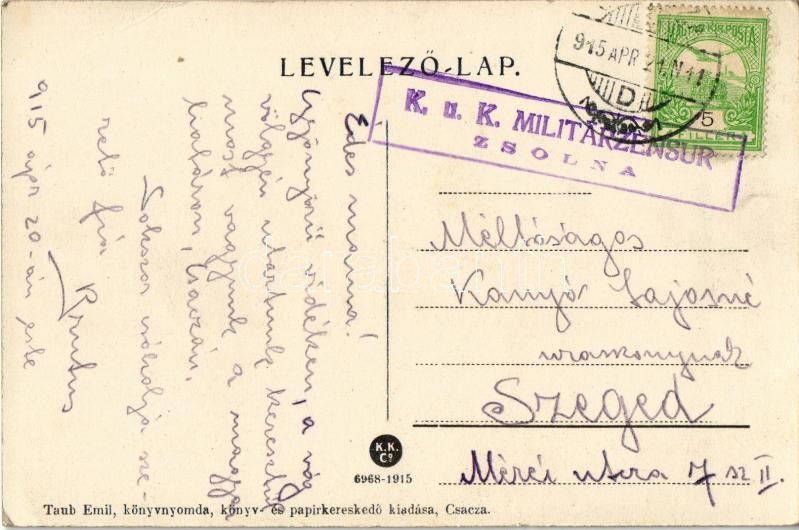 LEVELEZŐ-LAP.
915 APR 21. N 11
D
MAGYAR KIR. POSTA
5
FILLÉR
K. u. K. MILITÄRZENSUR
ZSOLNA
Édes mama!
Gyönyörű vidéken, a vág
völgyén utaztunk keresztül
most vagyunk a magyar
határon, Csaczán.
Sokszor csókolja sze-
rető fia
Brutus
915 ápr 20-án este
Méltóságos
Kanyó Lajosné
uraskonynak
Szeged
Mérei utcza 7 sz II.
K.K.
Co
6968-1915
Taub Emil, könyvnyomda, könyv- és papirkereskedő kiadása, Csacza.
darabanth